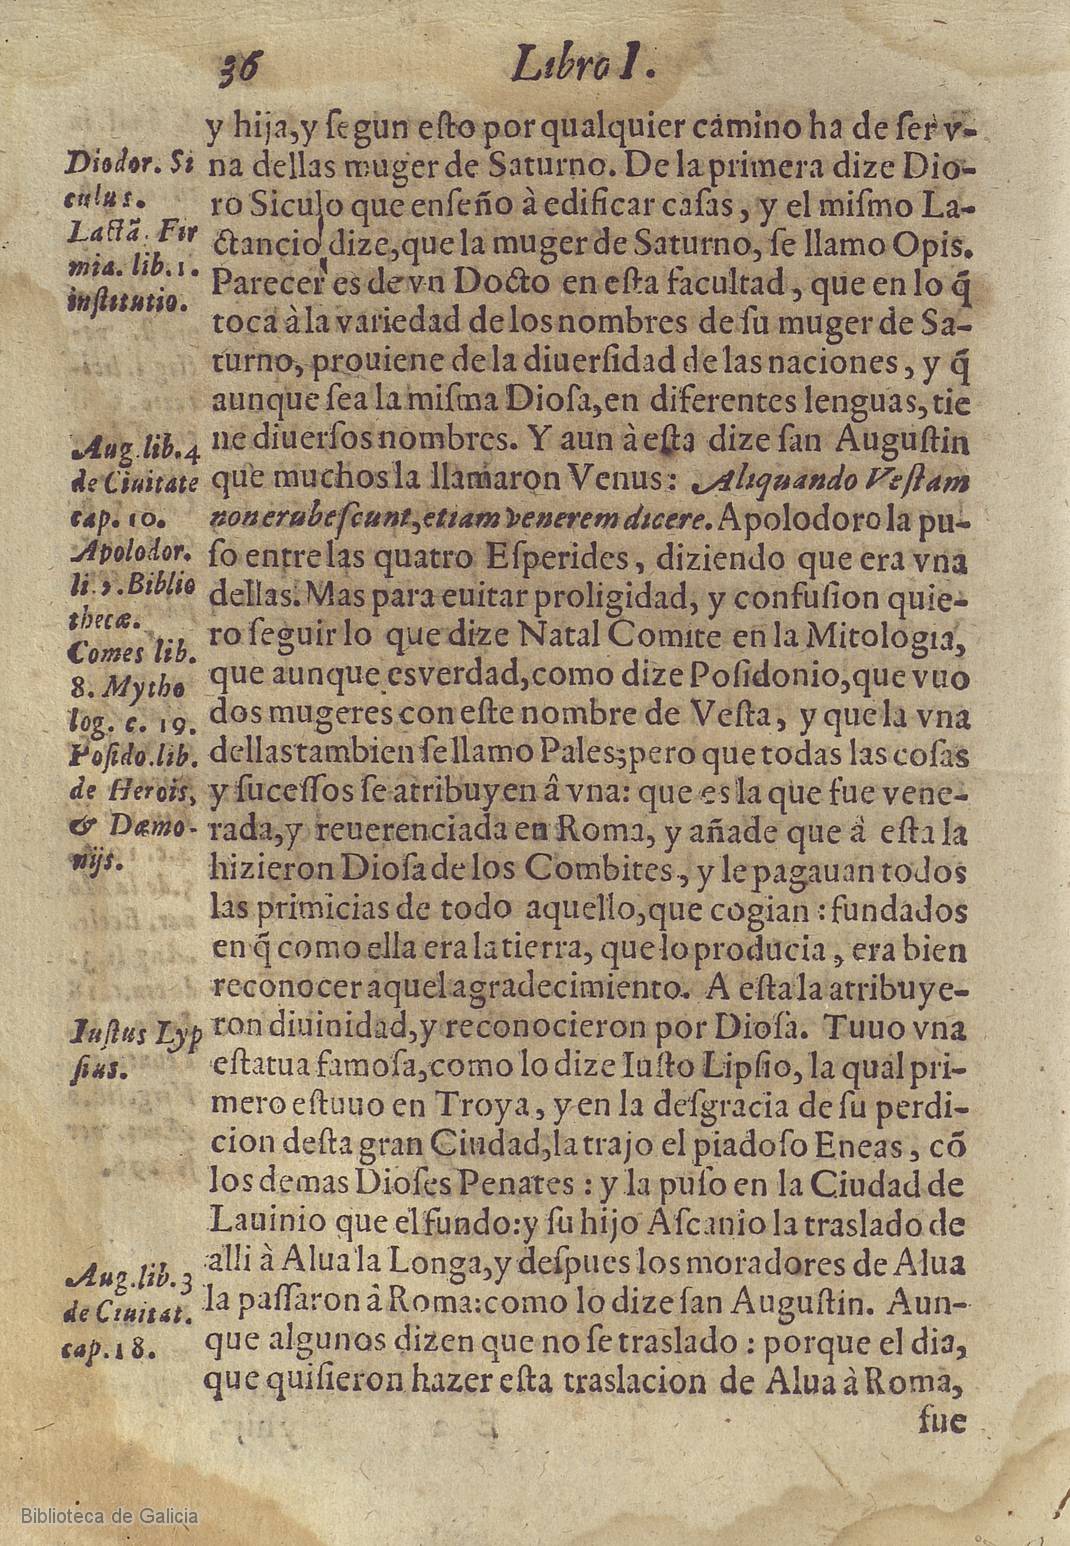 36
Libro I.
y hija,y segun esto por qualquier camino ha de ser v-
na dellas muger de Saturno. De la primera dize Dio-
ro Siculo que enseño à edificar casas, y el mismo La-
ctancio dize,que la muger de Saturno, se llamo Opis.
Parecer es de vn Docto en esta facultad, que en lo q̃
toca à la variedad de los nombres de su muger de Sa-
turno, prouiene de la diuersidad de las naciones, y q̃
aunque sea la misma Diosa,en diferentes lenguas,tie
ne diuersos nombres. Y aun à esta dize san Augustin
que muchos la llamaron Venus: Aliquando Vestam
non erubescunt,etiam venerem dicere. Apolodoro la pu-
so entre las quatro Esperides, diziendo que era vna
dellas. Mas para euitar proligidad, y confusion quie-
ro seguir lo que dize Natal Comite en la Mitologia,
que aunque es verdad,como dize Posidonio,que vuo
dos mugeres con este nombre de Vesta, y que la vna
dellas tambien se llamo Pales;pero que todas las cosas
y sucessos se atribuyen â vna: que es la que fue vene-
rada,y reuerenciada en Roma, y añade que â esta la
hizieron Diosa de los Combites, y le pagauan todos
las primicias de todo aquello,que cogian : fundados
en q̃ como ella era la tierra, que lo producia, era bien
reconocer aquel agradecimiento. A esta la atribuye-
ron diuinidad,y reconocieron por Diosa. Tuuo vna
estatua famosa,como lo dize Iusto Lipsio, la qual pri-
mero estuuo en Troya, y en la desgracia de su perdi-
cion desta gran Ciudad,la trajo el piadoso Eneas, cõ
los demas Dioses Penates : y la puso en la Ciudad de
Lauinio que el fundo:y su hijo Ascanio la traslado de
alli à Alua la Longa,y despues los moradores de Alua
la passaron â Roma:como lo dize san Augustin. Aun-
que algunos dizen que no se traslado : porque el dia,
que quisieron hazer esta traslacion de Alua à Roma,
fue
Diodor. Si
culus.
Lactã. Fir
mia. lib.1.
institutio.
Aug.lib.4
de Ciuitate
cap. 10.
Apolodor.
li. 2.Biblio
thecæ.
Comes lib.
8. Mytho
log. c. 19.
Posido.lib.
de Herois,
& Dæmo-
nijs.
Iustus Lyp
sius.
Aug.lib.3
de Ciuitat.
cap.18.
Biblioteca de Galicia